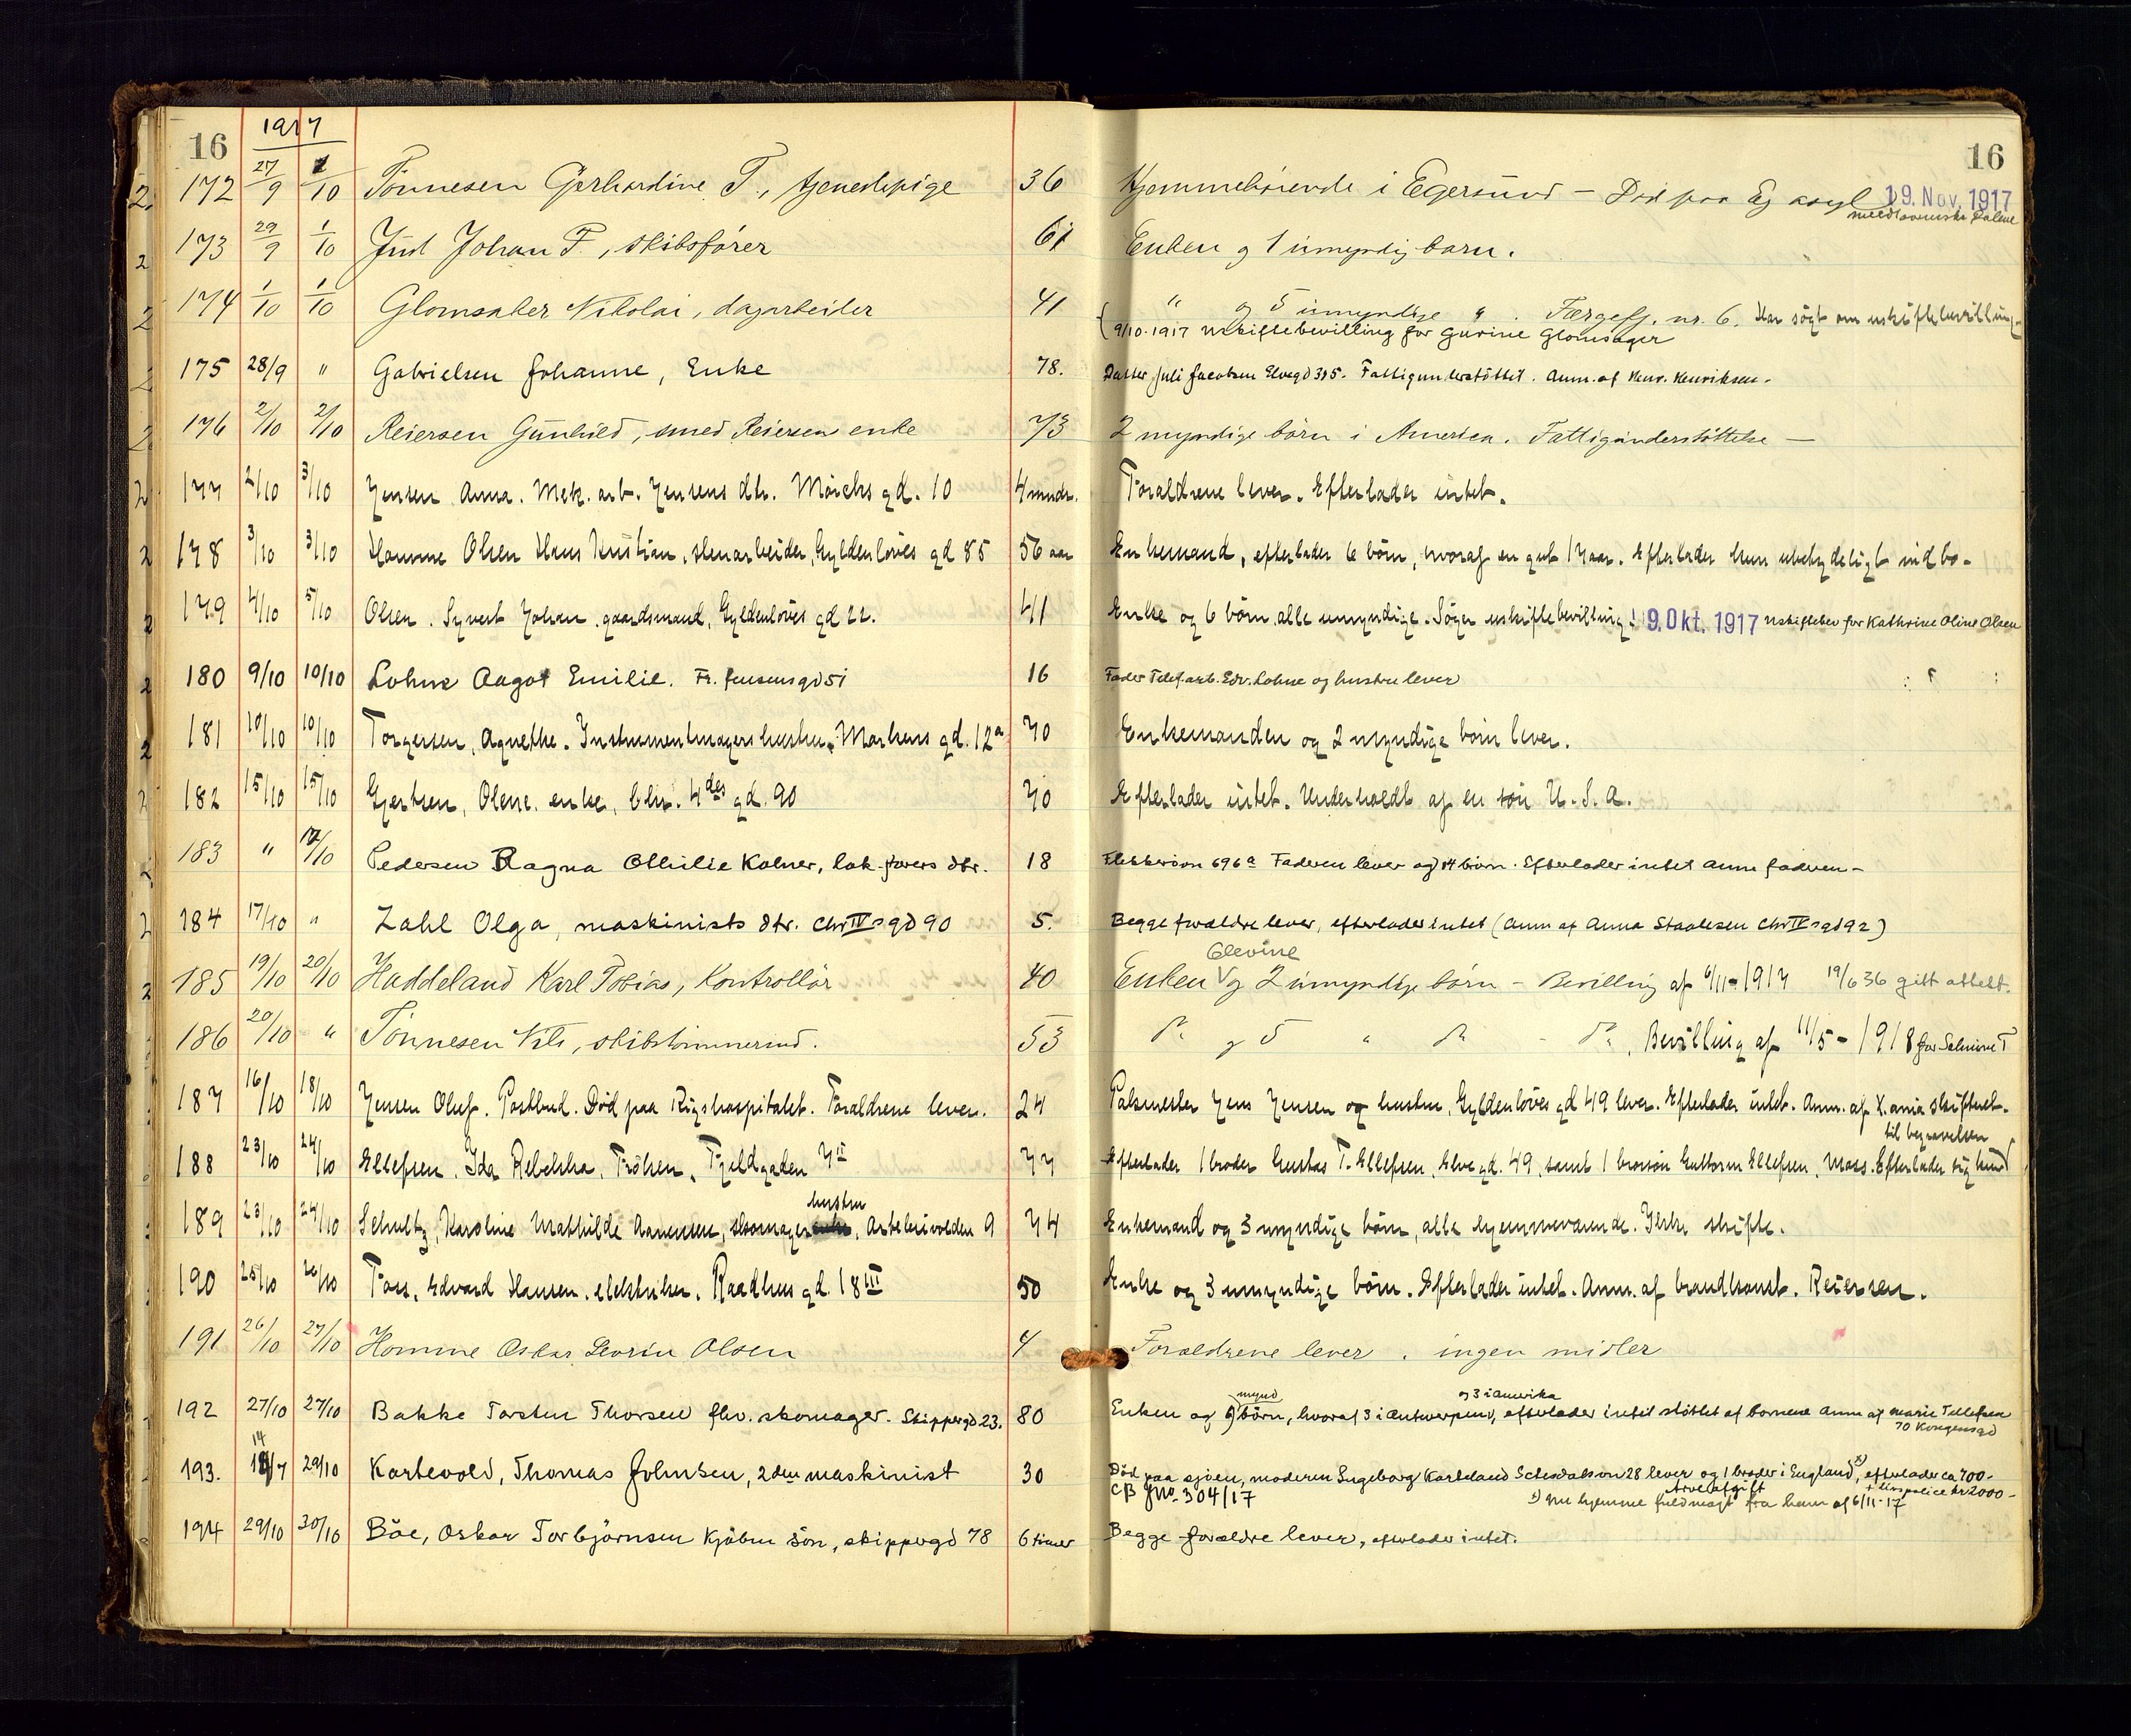 16 1917 16
2. 172 27/9 1/10 Tönnesen Gerhardine T., tjenestepige 36 Hjemmehörende i Egersund – Död paa Eg asyl 19. Nov. 1917
meddt Dalene
2 173 29/9 1/10 Juul Johan F., skibsförer 61 Enken og 1 umyndig barn.
2 174 1/10 1/10 Glomsaker Nikolai, dagarbeider 41 " og 5 umyndige " . Færgefj. nr. 6. Har sögt om uskiftebevilling
(9/10-1917 uskiftebevilling for Gurine Glomsager
2 175 28/9 " Gabrielsen Johanne, Enke 78. Datter Juli Jacobsen Elvegd 35. Fattigunderstöttet. Anm. af Henr. Henriksen.
2 176 2/10 2/10 Reiersen Gunhild, smed Reiersen enke 73 2 myndige börn i Amerika. Fattigunderstöttelse —
2 177 2/10 3/10 Jensen Anna. Mek. arb. Jensens dtr. Mörchs gd. 10 4 mndr. Forældrene lever. Efterlader intet.
2 178 3/10 3/10 Homme Olsen Hans Kristian, stenarbeider, Gyldenlöves gd 85 56 aar Enkemand, efterlader 6 börn, hvoraf en gut 17 aar. Efterlader kun ubetydeligt indbo.
2 179 4/10 5/10 Olsen. Syvert Johan. gaardsmand, Gyldenlöves gd 22. 41 Enke og 6 börn alle umyndige. Söger uskiftebevilling! 9. Okt. 1917 uskiftebev for Kathrine Oline Olsen
2 180 9/10 10/10 Lohne Aagot Emilie. Fr. Jensensgd 51 16 Fader Telef.arb. Edv. Lohne og hustru lever
2 181 10/10 10/10 Torgersen, Agnethe. Instrumentmagers hustru, Markens gd. 12a 70 Enkemanden og 2 myndige börn lever.
2 182 15/10 15/10 Gjertsen, Olene. enke, Chr. 4des gd. 90 70 Efterlader intet. Underholdt af en sön U.S.A.
2 183 " 17/10 Pedersen Ragna Othilie Kalner, lok.förers dtr. 18 Flekkeröen 696a Faderen lever og 14 börn. Efterlader intet Anm faderen –
2 184 17/10 " Zahl Olga, maskinists dtr. Chr IVs gd 90 5. Begge forældre lever, efterlader intet (Anm af Anna Staalesen Chr IVs gd 92)
Glevine
2 185 19/10 20/10 Haddeland Karl Tobias, Kontrollör 40 Enken V og 2 umyndige börn – Bevilling af 6/11-1917 19/6 36 gitt attest.
186 20/10 " Tönnesen Nils, skibstömmermd. 53 Do og 5 " Do - Do. Bevilling af 11/5-1918 for Selmine T
187 16/10 18/10 Jensen Oluf. Postbud. Död paa Rigshospitalet. Forældrene lever. 24 Pakmester Jens Jensen og hustru, Gyldenlöves gd 49 lever. Efterlader intet. Anm. af K.ania skifteret.
til begravelsen
188 23/10 24/10 Ellefsen. Ida Rebekka. Fröken. Fjeldgaden 7II 77 Efterlader 1 broder Gustav T. Ellefsen, Elvegd. 49, samt 1 brorsön Guttorm Ellefsen, Moss. Efterlader sig kun
hustru
189 23/10 24/10 Schultz, Karoline Mathilde Aanensen, skomager enke, Artellerivolden 9 74 Enkemand og 3 myndige börn, alle hjemmeværende. Ikke skifte.
190 25/10 26/10 Foss, Edvard Hansen. elektriker. Raadhus gd. 18III 50 Enke og 3 umyndige börn. Efterlader intet. Anm. af brandkonst. Reiersen.
191 26/10 27/10 Homme Oskar Severin Olsen 4 Forældrene lever . ingen midler
mynd og 3 i Amerika
192 27/10 27/10 Bakke Torsten Thorsen fhv. skomager. Skippergd 23. 80 Enken og 9 börn, hvoraf 3 i Antwerpen, efterlader intet stöttet af börnene Anm af Marie Tellefsen
70 Kongensgd
14
193. 18/7 29/10 Kartevold, Thomas Johnsen, 2den maskinist 30 Död paa sjöen, moderen Ingeborg Karteland 28 lever og 1 broder i England x), efterlader ca 700-
CB Jno. 304/17 Arveafgift + livspolice kr 2000-
x) nu hjemme fuldmagt fra ham af 6/11-17
194 29/10 30/10 Böe, Oskar Torbjörnsen Kjöbm sön, skippergd 78 6 timer Begge forældre lever, efterlader intet.